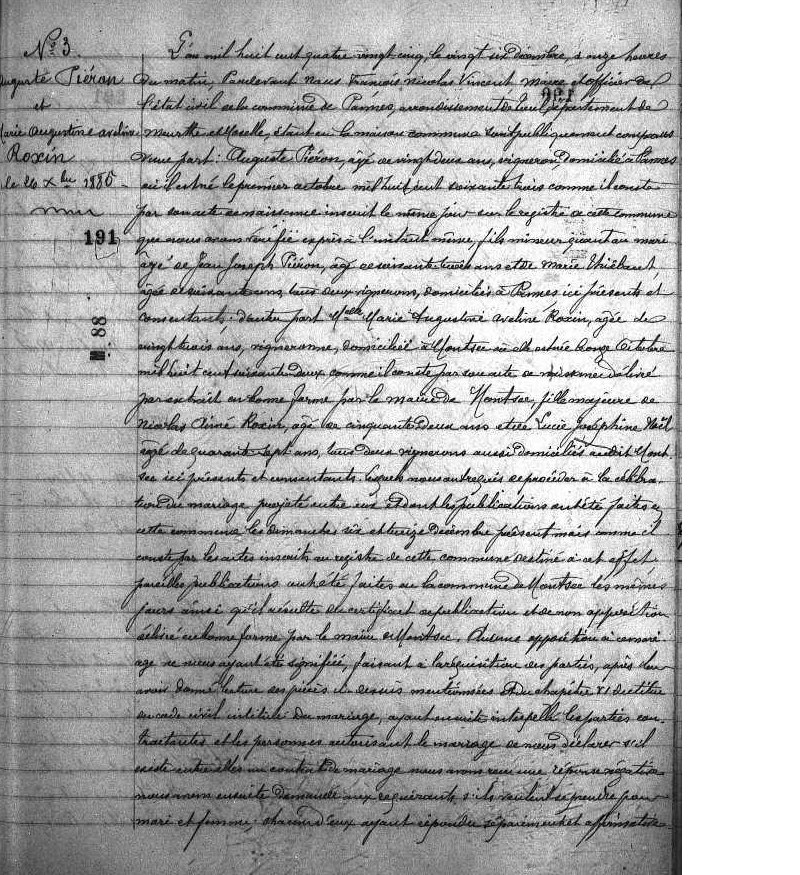 N° 3
Auguste Piéron
et
Marie Augustine Aveline
Roxin
le 26 Xbre 1885
191
88
L'an mil huit cent quatre vingt cinq, le vingt six Décembre, à onze heures
du matin, Pardevant Nous François Nicolas Vincent, Maire et officier de
l'état civil de la commune de Pannes, arrondissement de Toul, département de
Meurthe et Moselle, étant en la maison commune sont publiquement comparus
d'une part: Auguste Piéron, âgé de vingt deux ans, vigneron, domicilié à Pannes
où il est né le premier octobre mil huit cent soixante trois comme il conste
par son acte de naissance inscrit le même jour sur le registre de cette commune
que nous avons vérifié exprès à l'instant même, fils mineur quant au mari
âgé de Jean Joseph Piéron, âgé de soixante trois ans et de Marie Thiébaut,
âgée de soixante ans, tous deux vignerons, domiciliés à Pannes ici présents et
consentants; d'autre part Melle Marie Augustine Aveline Roxin, âgée de
vingt trois ans, vigneronne, domiciliée à Montsec où elle est née Octobre
mil huit cent soixante deux comme il conste par son acte de naissance délivré
par extrait en bonne forme par le maire de Montsec, fille majeure de
Nicolas Aimé Roxin, âgé de cinquante deux ans et de Lucie Joséphine Noël
âgée de quarante sept ans, tous deux vignerons aussi domiciliés audit Mont-
sec ici présents et consentants. Lesquels nous ont requis de procéder à la célébra-
tion du mariage projeté entre eux et dont les publications ont été faites en
cette commune les dimanches six et treize Décembre présent mois comme il
conste par les actes inscrits au registre de cette commune destiné à cet effet,
pareilles publications ont été faites en la commune de Montsec les mêmes
jours ainsi qu'il résulte du certificat de publication et de non opposition
délivré en bonne forme par le maire de Montsec. Aucune opposition à ce mari-
age ne nous ayant été signifiée, faisant à la réquisition des parties, après leur
avoir donné lecture des pièces ci dessus mentionnées et du chapitre VI du titre
du code civil intitulé Du mariage, ayant ensuite interpellé les parties con-
tractantes et les personnes autorisant le mariage de nous déclarer s'il
existe entre elles un contrat de mariage nous avons reçu une réponse négative
nous avons ensuite demandé aux requérants s'ils veulent se prendre pour
mari et femme; chacun d'eux ayant répondu séparément et affirmative-